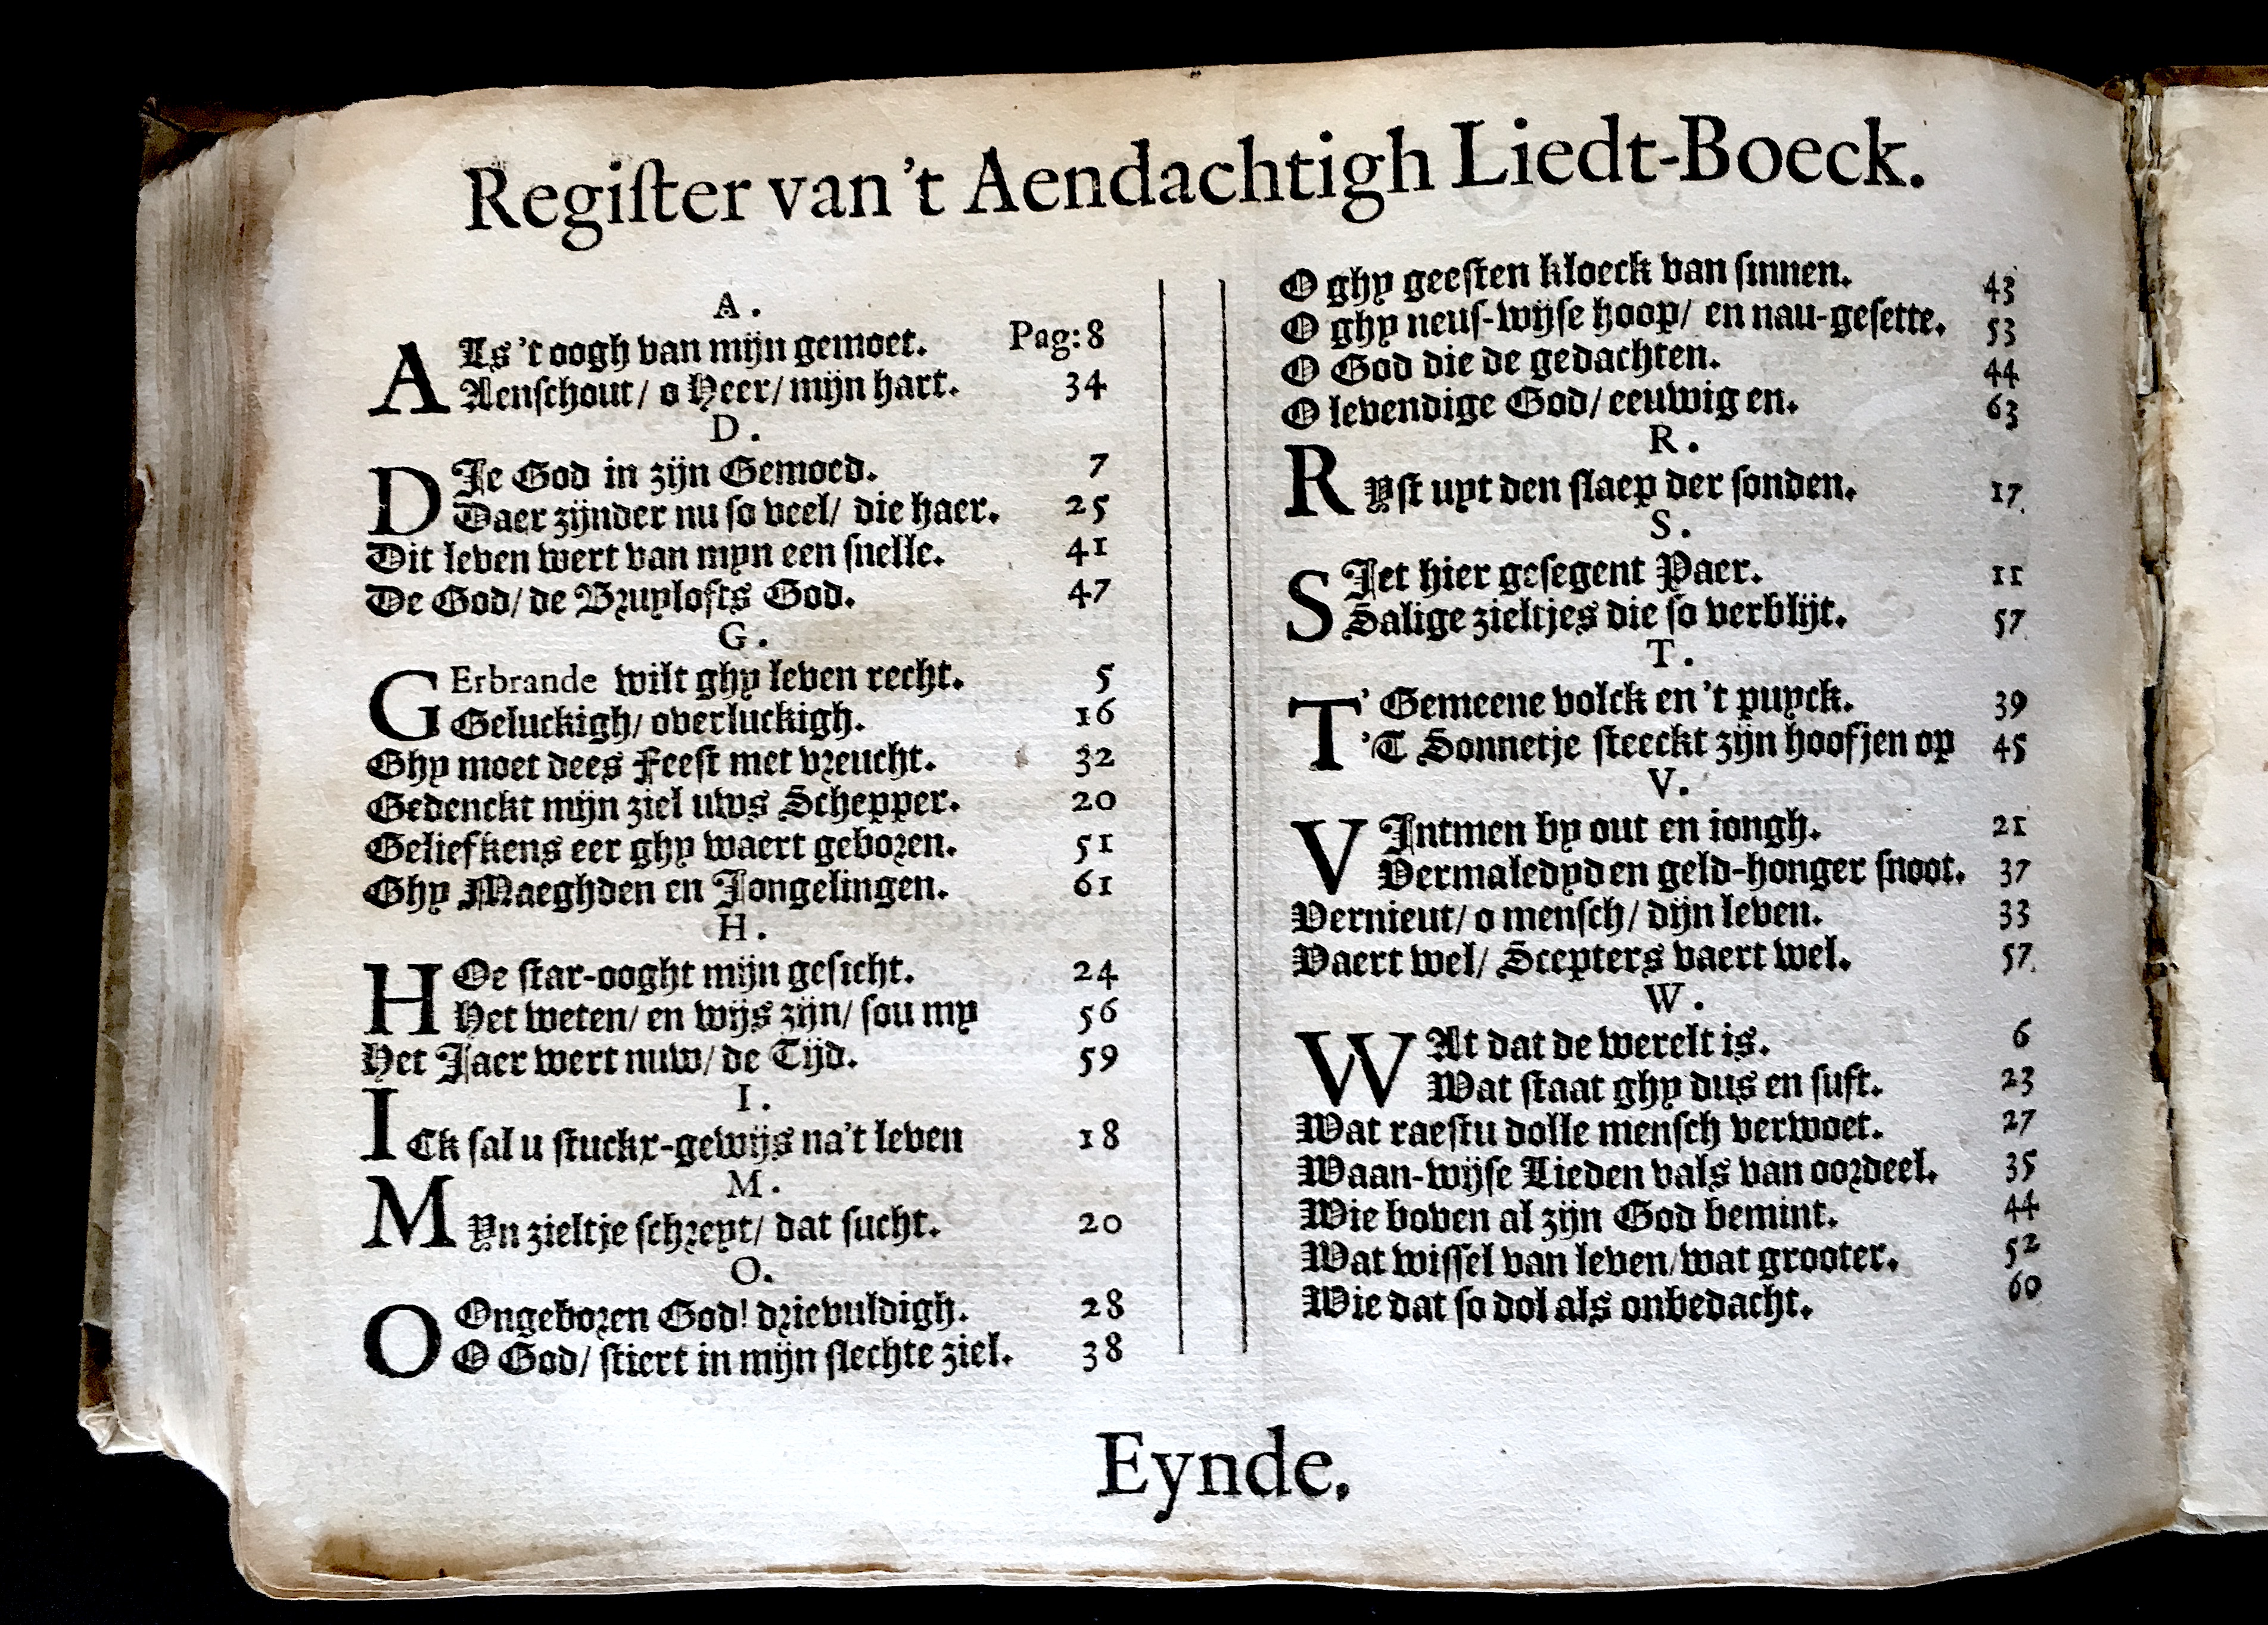 Regiſter van 't Aendachtigh Liedt-Boeck.
A.
ALs 't oogh van mijn gemoet. Pag: 8
Aenſchout/ o Heer/ mijn hart. 34
D.
DIe God in zijn Gemoed. 7
Daer zijnder nu ſo veel/ die haer. 25
Dit leven wert van myn een ſnelle. 41
De God/ de Bruylofts God. 47
G.
GErbrande wilt ghy leven recht. 5
Geluckigh/ overluckigh. 16
Ghy moet dees Feeſt met vreucht. 32
Gedenckt mijn ziel uws Schepper. 20
Geliefkens eer ghy waert geboren. 51
Ghy Maeghden en Jongelingen. 61
H.
HOe ſtar-ooght mijn geſicht. 24
Het weten/ en wijs zijn/ ſou my 56
Het Jaer wert nuw/ de Tijd. 59
I.
ICk ſal u ſtuckx-gewijs na't leven 18
M.
MYn zieltje ſchreyt/ dat ſucht. 20
O.
O Ongeboren God! drievuldigh. 28
O God/ ſtiert in mijn ſlechte ziel. 38
O ghy geeſten kloeck van ſinnen. 43
O ghy neuſ-wijſe hoop/ en nau-geſette. 53
O God die de gedachten. 44
O levendige God/ eeuwig en. 63
R.
RYſt uyt den ſlaep der ſonden. 17.
S.
SIet hier geſegent Paer. 11
Salige zieltjes die ſo verblijt. 57.
T.
T' Gemeene volck en 't puyck. 39
'T Sonnetje ſteeckt zijn hoofjen op 45
V.
VIntmen by out en iongh. 21
Vermaledyden geld-honger ſnoot. 37
Vernieut/ o menſch/ dijn leven. 33
Vaert wel/ Scepters vaert wel. 57.
W.
WAt dat de werelt is. 6
Wat ſtaat ghy dus en ſuft. 23
Wat raeſtu dolle menſch verwoet. 27
Waan-wijſe Lieden vals van oordeel. 35
Wie boven al zijn God bemint. 44
Wat wiſſel van leven/ wat grooter. 52
Wie dat ſo dol als onbedacht. 60
Eynde.